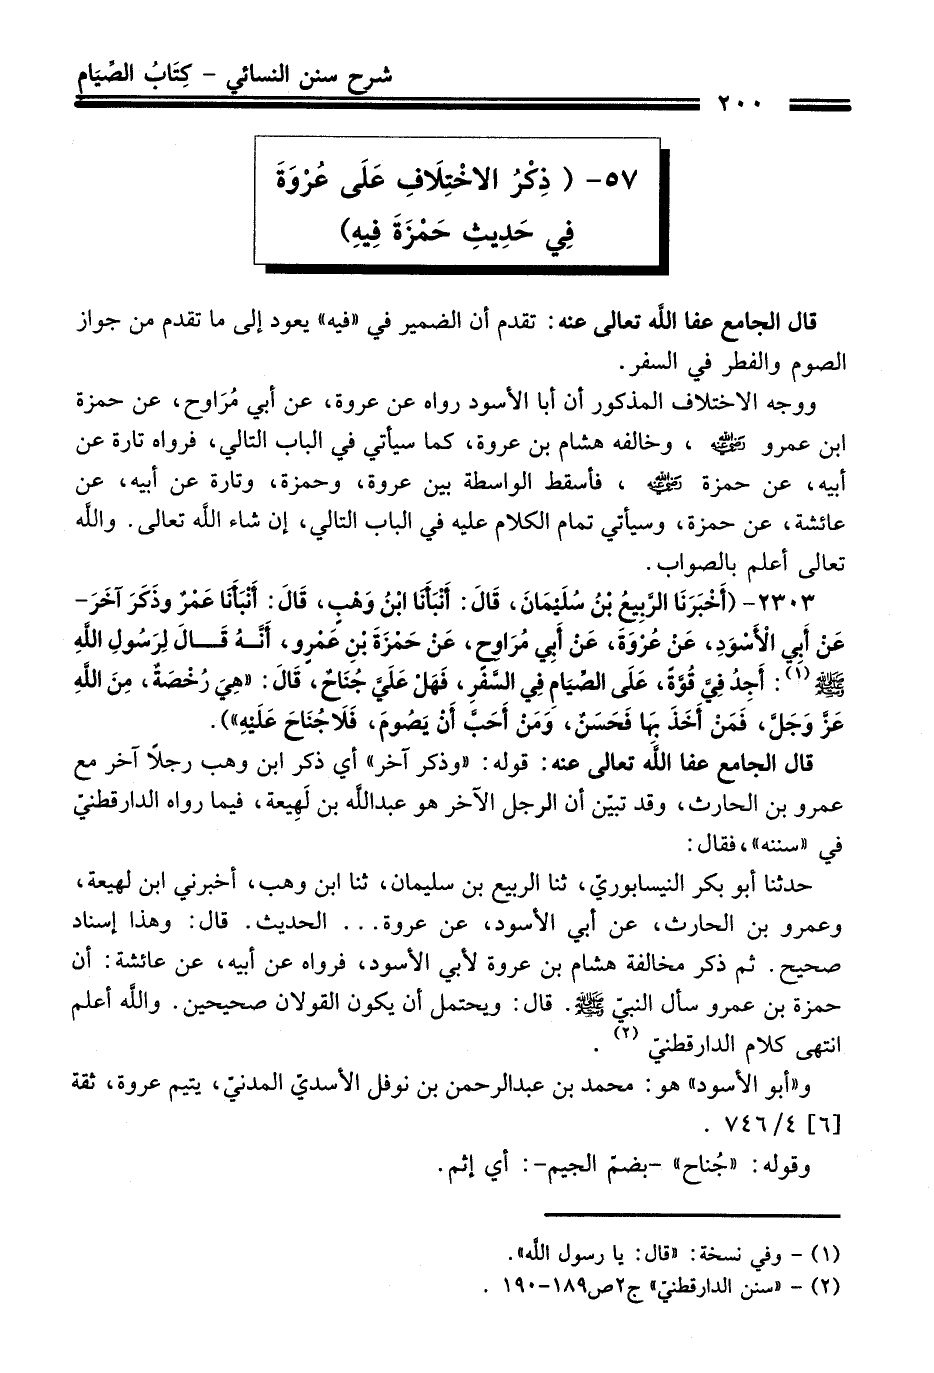 شرح سنن النسائي - كِتَابُ الصِّيَامِ
٢٠٠
٥٧- ( ذِكْرُ الاخْتِلَافِ عَلَى عُرْوَةَ
فِي حَدِيثِ حَمْزَةَ فِيهِ)
قال الجامع عفا اللَّه تعالى عنه: تقدم أن الضمير في «فيه» يعود إلى ما تقدم من جواز
الصوم والفطر في السفر.
ووجه الاختلاف المذكور أن أبا الأسود رواه عن عروة، عن أبي مُرَاوح، عن حمزة
ابن عمرو رضي الله عنه ، وخالفه هشام بن عروة، كما سيأتي في الباب التالي، فرواه تارة عن
أبيه، عن حمزة رضي الله عنه ، فأسقط الواسطة بين عروة، وحمزة، وتارة عن أبيه، عن
عائشة، عن حمزة، وسيأتي تمام الكلام عليه في الباب التالي، إن شاء اللَّه تعالى. واللَّه
تعالى أعلم بالصواب.
٢٣٠٣- (أَخْبَرَنَا الرَّبِيعُ بْنُ سُلَيْمَانَ، قَالَ: أَنْبَأَنَا ابْنُ وَهْبٍ، قَالَ: أَنْبَأَنَا عَمْرٌ وذَكَرَ آخَرَ-
عَنْ أَبِي الْأَسْوَدِ، عَنْ عُرْوَةَ، عَنْ أَبِي مُرَاوِحٍ، عَنْ حَمْزَةَ بْنِ عَمْرٍو، أَنَّهُ قَالَ لِرَسُولِ اللَّهِ
ﷺ(١): أَجِدُ فِيَّ قُوَّةً، عَلَى الصِّيَامِ فِي السَّفَرِ، فَهَلْ عَلَيَّ جُنَاحٌ، قَالَ: «هِيَ رُخْصَةٌ، مِنَ اللَّهِ
عَزَّ وَجَلَّ، فَمَنْ أَخَذَ بِهَا فَحَسَنٌ، وَمَنْ أَحَبَّ أَنْ يَصُومَ، فَلَا جُنَاحَ عَلَيْهِ»).
قال الجامع عفا اللَّه تعالى عنه: قوله: «وذكر آخر» أي ذكر ابن وهب رجلًا آخر مع
عمرو بن الحارث، وقد تبيّن أن الرجل الآخر هو عبداللَّه بن لَهِيعة، فيما رواه الدارقطنيّ
في «سننه»، فقال:
حدثنا أبو بكر النيسابوريّ، ثنا الربيع بن سليمان، ثنا ابن وهب، أخبرني ابن لهيعة،
وعمرو بن الحارث، عن أبي الأسود، عن عروة... الحديث. قال: وهذا إسناد
صحيح. ثم ذكر مخالفة هشام بن عروة لأبي الأسود، فرواه عن أبيه، عن عائشة: أن
حمزة بن عمرو سأل النبيّ ﷺ. قال: ويحتمل أن يكون القولان صحيحين. واللَّه أعلم
انتهى كلام الدارقطنيّ (٢) .
و«أبو الأسود» هو: محمد بن عبدالرحمن بن نوفل الأسديّ المدنيّ، يتيم عروة، ثقة
[٦] ٤/ ٧٤٦ .
وقوله: «جُناح» -بضمّ الجيم-: أي إثم.
(١) - وفي نسخة: «قال: يا رسول اللَّه».
(٢) - «سنن الدارقطنيّ» ج٢ص١٨٩-١٩٠ .